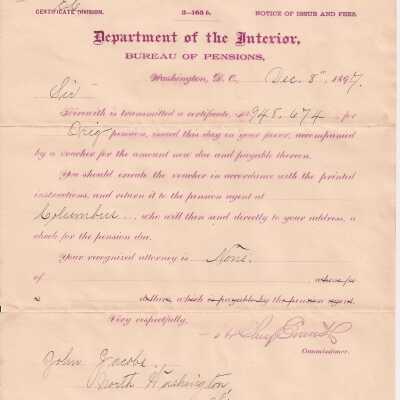 CERTIFICATE DIVISION. 3—165 b. NOTICE OF ISSUE AND FEES.
Department of the Interior,
BUREAU OF PENSIONS,
Washington, D. C., Dec. 8", 1897
Sir
Herewith is transmitted a certificate, No 945.674, for
Orig pension, issued this day in your favor, accompanied
by a voucher for the amount now due and payable thereon.
You should execute the voucher in accordance with the printed
instructions, and return it to the pension agent at
Columbus, who will then send directly to your address, a
check for the pension due.
Your recognized attorney is None.
of whose fee
dollars, which is payable by the pension agent.
Very respectfully,
Commissioner.
John Jacobs,
North Washington,